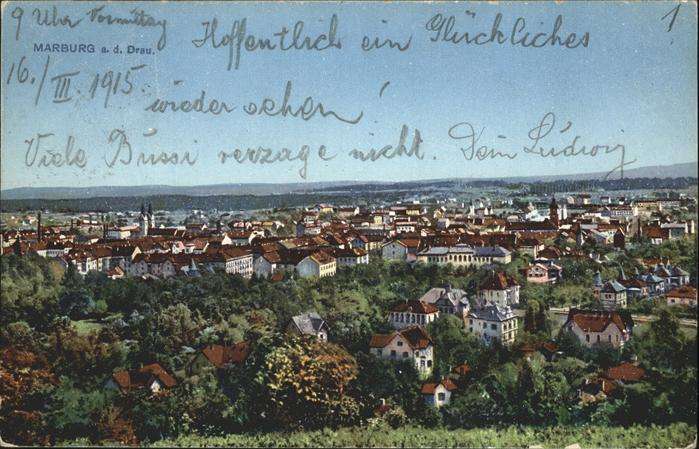 9 Uhr Vormittag
MARBURG a. d. Drau.
16./III. 1915.
1
Hoffentlich ein Glückliches
wieder sehen!
Viele Bussi verzage nicht. Dein Ludwig